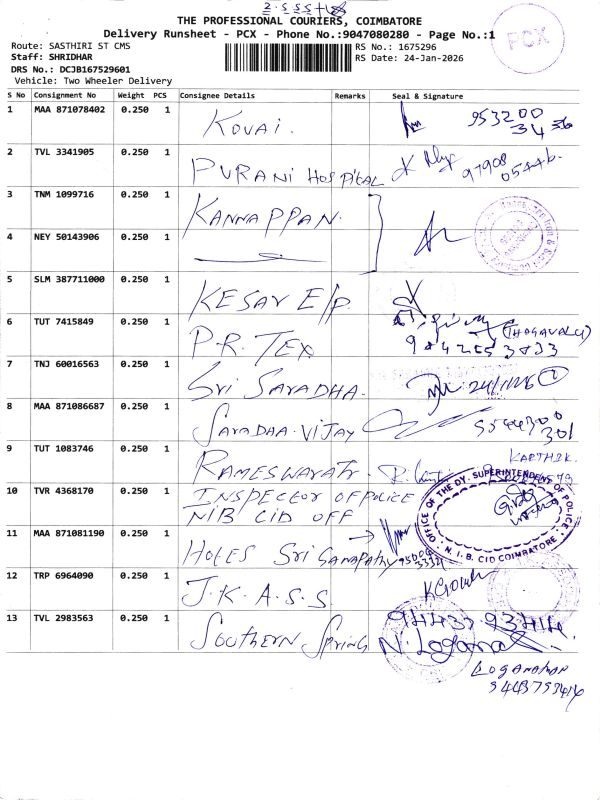 THE PROFESSIONAL COURIERS, COIMBATORE
Delivery Runsheet - PCX - Phone No.:9047080280 - Page No.:1
PCX
Route: SASTHIRI ST CMS
RS No.: 1675296
Staff: SHRIDHAR
RS Date: 24-Jan-2026
DRS No.: DCJB167529601
Vehicle: Two Wheeler Delivery
S No Consignment No Weight PCS Consignee Details Remarks Seal & Signature
1 MAA 871078402 0.250 1 KOVAI. 953200
34 36
2 TVL 3341905 0.250 1 PURANI HOSPITAL 97908
05446.
3 TNM 1099716 0.250 1 KANNAPPAN.
4 NEY 50143906 0.250 1
5 SLM 387711000 0.250 1 KESAV E/P
6 TUT 7415849 0.250 1 P.R. TEX (THOGAVALLI)
9842253833
7 TNJ 60016563 0.250 1 Sri SARADHA. 24/1/26
8 MAA 871086687 0.250 1 SARADAA.VIJAY 9544300
301
KARTHIK.
9 TUT 1083746 0.250 1 RAMESWARATR.
10 TVR 4368170 0.250 1 INSPECTOR OF POLICE
NIB CID OFF
OFFICE OF THE DY. SUPERINTENDENT OF POLICE
N.I.B. CID COIMBATORE
11 MAA 871081190 0.250 1 HOTES Sri GANAPATHY 95006
3332
12 TRP 6964090 0.250 1 J.K.A.S.S
13 TVL 2983563 0.250 1 SOUTHERN SPRING 94433.93414
N. Logana
LOGANATHAN
9443793414